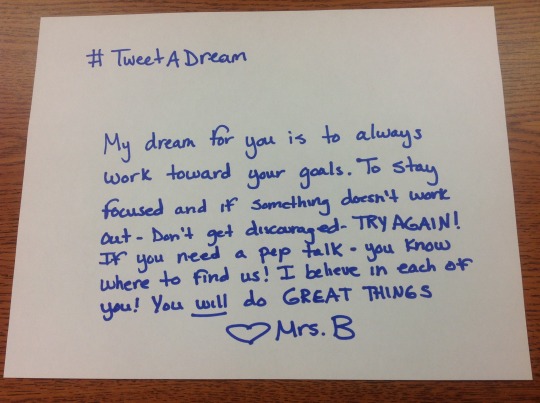 # TweetADream
My dream for you is to always
work toward your goals. To stay
focused and if something doesn't work
out - Don't get discouraged - TRY AGAIN!
If you need a pep talk - you know
where to find us! I believe in each of
you! You will do GREAT THINGS
♡ Mrs. B